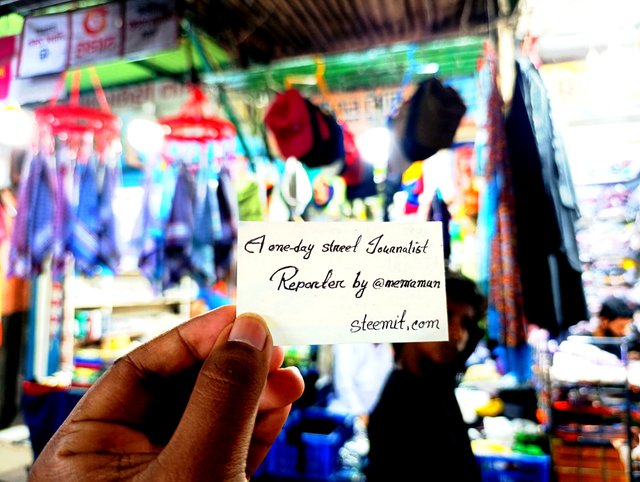 A one-day street Journalist
Reporter by @memamun
steemit.com